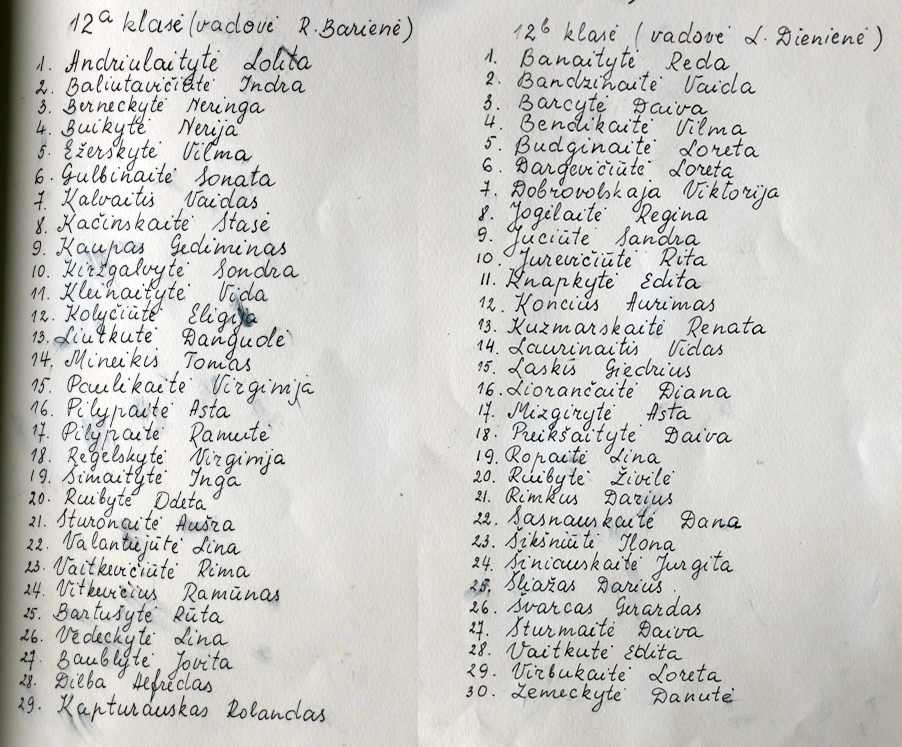 12ᵃ klasė (vadovė R. Barienė)
1. Andriulaitytė Lolita
2. Baliutavičiūtė Indra
3. Berneckytė Neringa
4. Buikytė Nerija
5. Ežerskytė Vilma
6. Gulbinaitė Sonata
7. Kalvaitis Vaidas
8. Kačinskaitė Stasė
9. Kaupas Gediminas
10. Kiržgalvytė Sondra
11. Kleinaitytė Vida
12. Kolyčiūtė Eligija
13. Liutkutė Danguolė
14. Mineikis Tomas
15. Paulikaitė Virginija
16. Pilypaitė Asta
17. Pilypaitė Ramutė
18. Regelskytė Virginija
19. Šimaitytė Inga
20. Ruibytė Odeta
21. Sturonaitė Aušra
22. Valantiejūtė Lina
23. Vaitkevičiūtė Rima
24. Vitkevičius Ramūnas
25. Bartušytė Rūta
26. Vedeckytė Lina
27. Baublytė Jovita
28. Dilba Alfredas
29. Kapturauskas Rolandas
12ᵇ klasė (vadovė L. Dienienė)
1. Banaitytė Reda
2. Bandzinaitė Vaida
3. Barcytė Daiva
4. Bendikaitė Vilma
5. Budginaitė Loreta
6. Dargevičiūtė Loreta
7. Dobrovolskaja Viktorija
8. Jogilaitė Regina
9. Juciūtė Sandra
10. Jurevičiūtė Rita
11. Knapkytė Edita
12. Koncius Aurimas
13. Kuzmarskaitė Renata
14. Laurinaitis Vidas
15. Laskis Giedrius
16. Liorančaitė Diana
17. Mizgirytė Asta
18. Preikšaitytė Daiva
19. Ropaitė Lina
20. Ruibytė Živilė
21. Rimkus Darius
22. Sasnauskaitė Dana
23. Šikšniūtė Ilona
24. Siniauskaitė Jurgita
25. Šliažas Darius
26. Švarcas Gerardas
27. Sturmaitė Daiva
28. Vaitkutė Edita
29. Virbukaitė Loreta
30. Žemeckytė Danutė